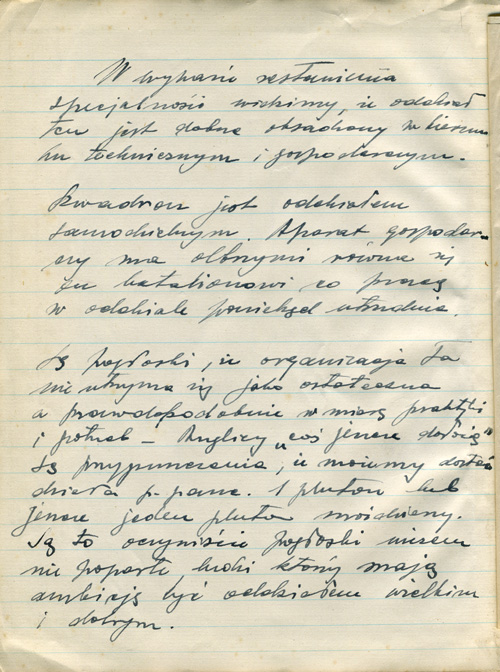 W wykazie zestawienia
specjalności widzimy, iż oddział
ten jest dobrze obsadzony w kierun
ku technicznym i gospodarczym.
Szwadron jest oddziałem
samodzielnym. Aparat gospodar-
czy ma olbrzymi równa się
on batalionowi co pracę
w oddziale poniekąd utrudnia.
Są pogłoski, iż organizacja ta
nie utrzyma się jako ostateczna
a prawdopodobnie w miarę praktyki
i potrzeb – Anglicy "coś jeszcze dołożą"
Są przypuszczenia, iż możemy dostać
działa p-panc. 1 pluton lub
jeszcze jeden pluton
Są to oczywiście pogłoski niczem
nie poparte, ludzi którzy mają
ambicję być oddziałem wielkim
i dobrym.